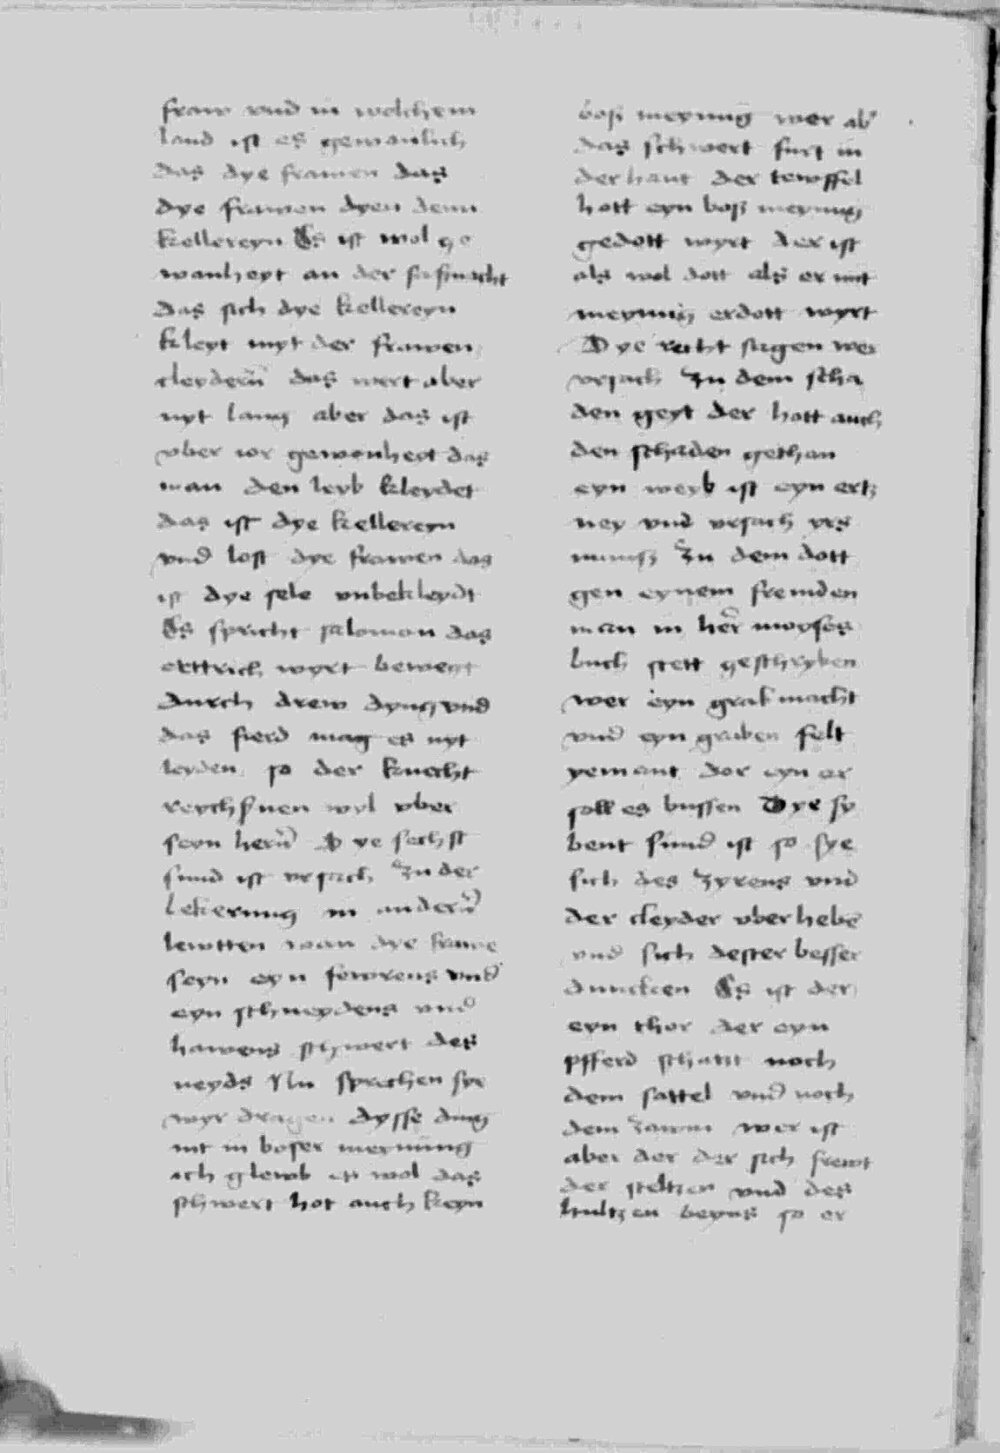 fraw vnd in welchem
land ist es gewanlich
das dye frawen das
dye frawen dyen denn
kellereyn Es ist wol ge
wanheyt an der fasnacht
das sich dye kellereyn
kleyt myt der frawen
cleydern̄ das wert aber
nyt lang aber das ist
vber ior gewonheyt das
man den leyb kleydet
das ist dye kellereyn
vnd lost dye frawen das
ist dye sele vnbekleydt
Es spricht salomon das
erttrich wyrt bewegt
durch drew dyng vnd
das fierd mag es nyt
leyden so der knecht
reychsnen wyl vber
seyn hern̄ Dye sechst
sund ist vrsach zu der
lekerung in andern̄
lewtten wan dye frawe
seyn eyn fewrens vnd
eyn schneydens vnd
hawens schwert des
neyds Nu sprechen sye
wyr dragen dysse ding
nit in boser meynung
ich glewb es wol das
schwert hot auch keyn
boß meynung wer ab'
das schwert furt in
der hant der tewffel
hott eyn boß meynung
gedott wyrt der ist
als wol dott als er mit
meynung erdott wyrt
Dye recht sagen wer
vrsach zu dem scha
den geyt der hott auch
den schaden gethan
eyn weyb ist eyn ertz
ney vnd vrsach yrs
zu dem dott
gen eynem fremden
man in her moyses
buch stett geschryben
wer eyn grab macht
vnd eyn graben felt
yemant dor eyn er
soll es bussen Dye sy
bent sund ist so sye
sich des zyrens vnd
der cleyder vberhebē
vnd sich dester besser
duncken Es ist der
eyn thor der eyn
pfferd schatzt noch
dem sattel vnd noch
dem zawm wer ist
aber der der sich frewt
der steltzen vnd des
hultzen beyns so er